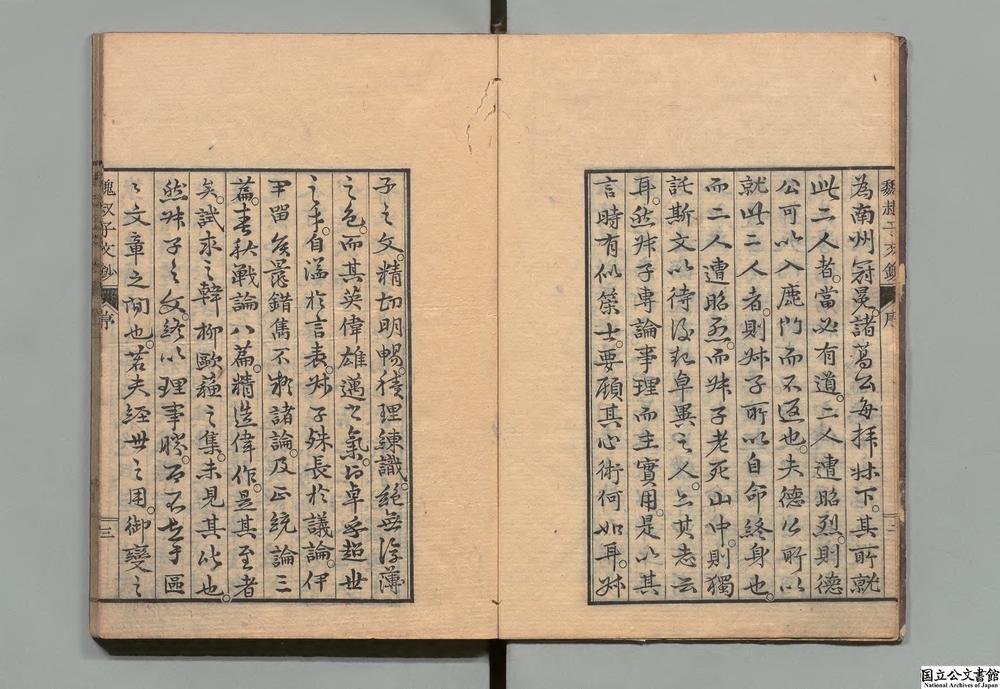 魏叔子文鈔 序 二
為南州冠冕。諸葛公每拜牀下。其所就
此二人者。當必有道。二人遭昭烈。則德
公可以入鹿門而不返也。夫德公所以
就此二人者。則叔子所以自命終身也。
而二人遭昭烈。而叔子老死山中。則獨
託斯文以待後起卓異之人。亦其志云
耳。然叔子專論事理而主實用。是以其
言時有似策士。要顧其心術何如耳。叔
子之文。精切明暢。積理練識。絕無浮薄
之色。而其英偉雄邁之氣。與卓犖超世
之才。自溢於言表。叔子殊長於議論。伊
尹留侯鼂錯雋不疑諸論。及正統論三
篇。春秋戰論八篇。精造偉作。是其至者
矣。試求之韓柳歐蘇之集。未見其比也。
然叔子之文。終以理事勝。而不在于區
區文章之間也。若夫經世之用。御變之
魏叔子文鈔 序 三
国立公文書館
National Archives of Japan